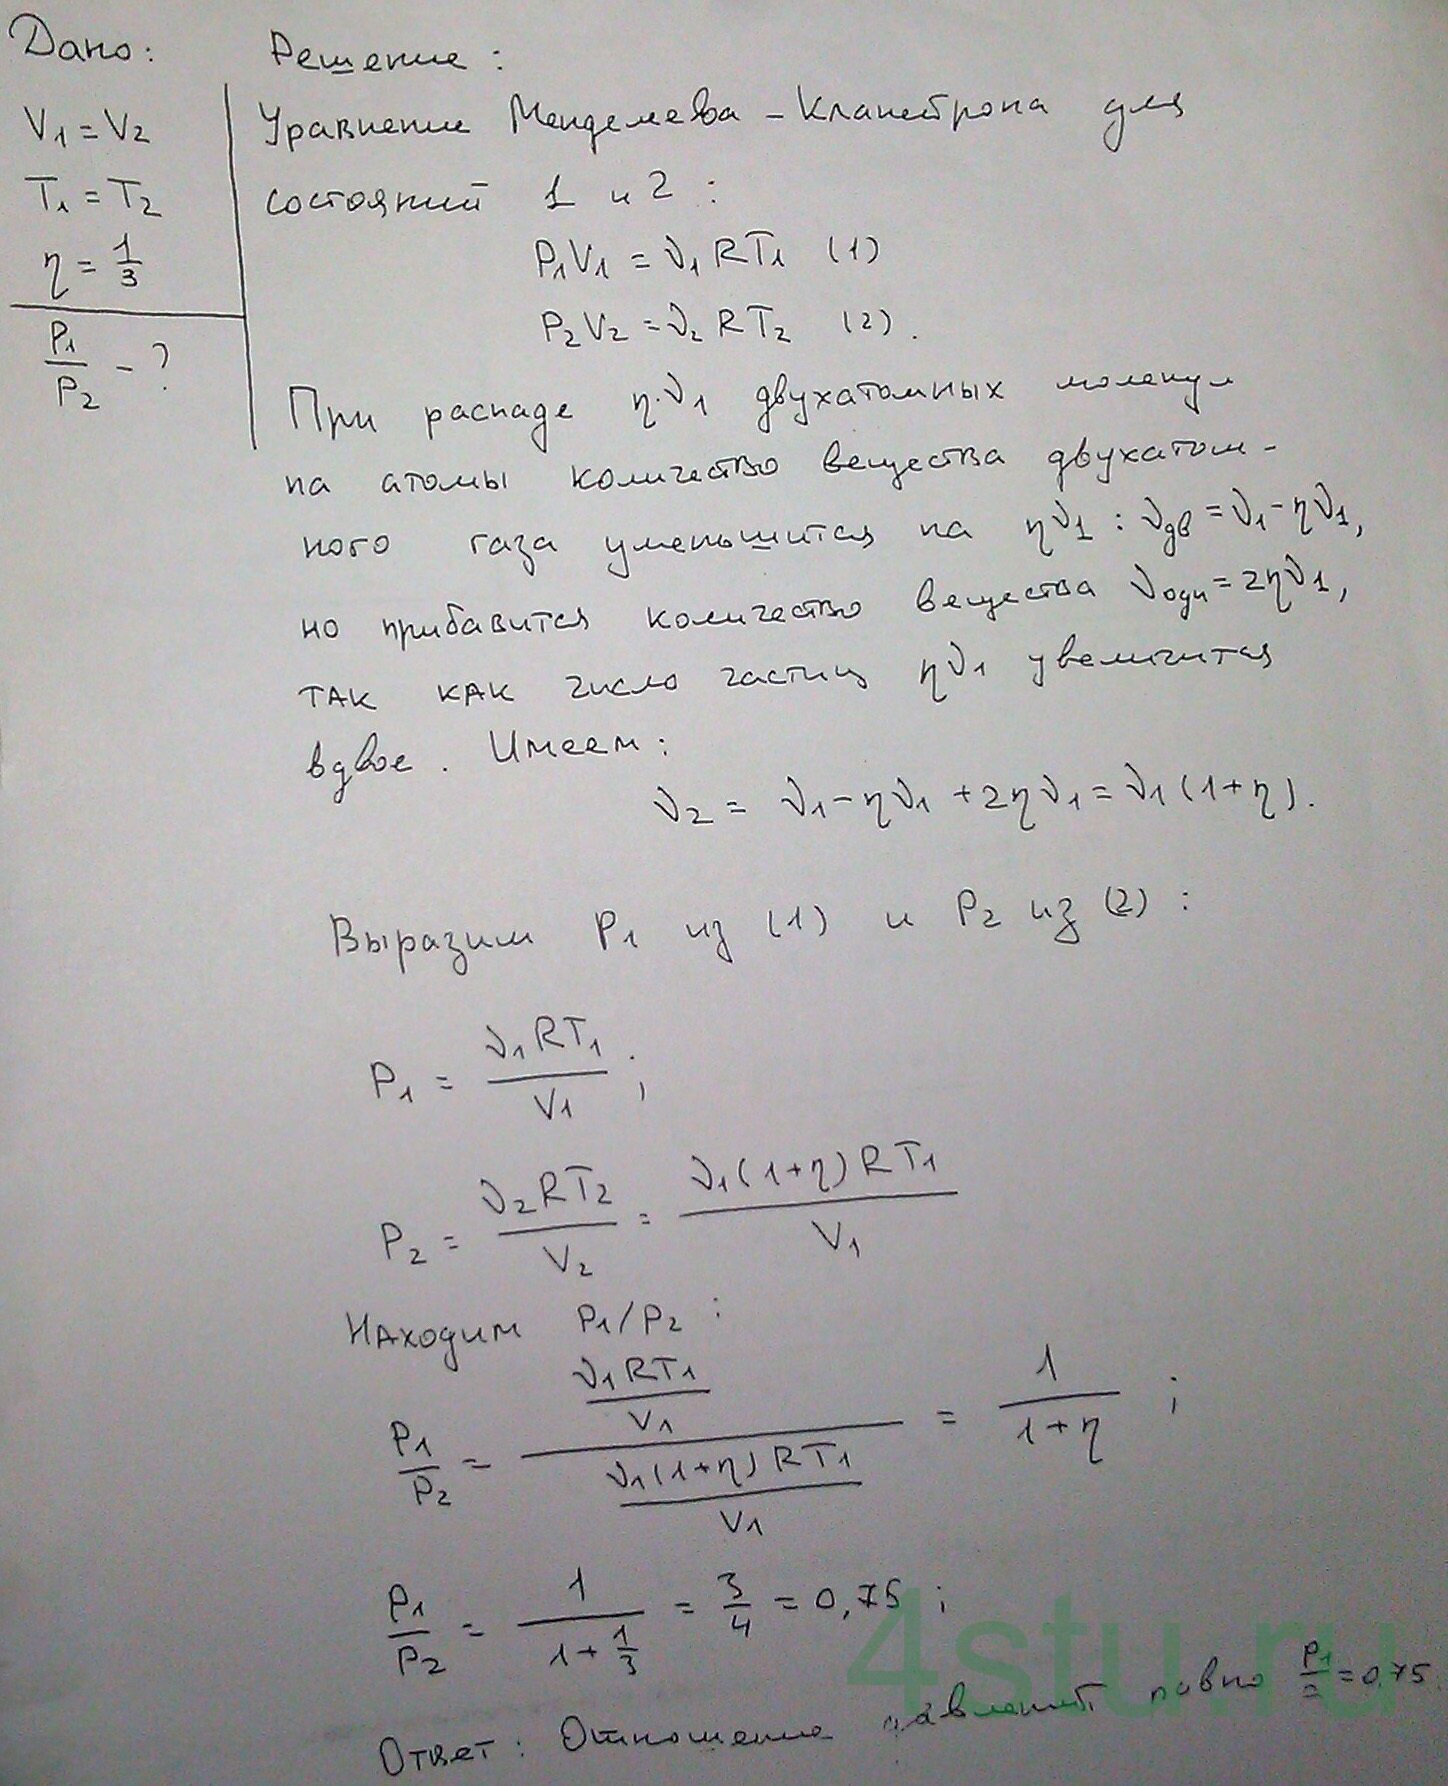 Дано:
V₁ = V₂
T₁ = T₂
η = 1/3
P₁/P₂ - ?
Решение:
Уравнение Менделеева - Клапейрона для
состояний 1 и 2:
P₁V₁ = ν₁RT₁ (1)
P₂V₂ = ν₂RT₂ (2).
При распаде η·ν₁ двухатомных молекул
на атомы количество вещества двухатом-
ного газа уменьшится на ην₁: νдв = ν₁ - ην₁,
но прибавится количество вещества νодн = 2ην₁,
так как число частиц ην₁ увеличится
вдвое. Имеем:
ν₂ = ν₁ - ην₁ + 2ην₁ = ν₁(1+η).
Выразим P₁ из (1) и P₂ из (2):
P₁ = ν₁RT₁/V₁;
P₂ = ν₂RT₂/V₂ = ν₁(1+η)RT₁/V₁
Находим P₁/P₂:
P₁/P₂ = (ν₁RT₁/V₁)/(ν₁(1+η)RT₁/V₁) = 1/(1+η);
P₁/P₂ = 1/(1+1/3) = 3/4 = 0,75;
Ответ: Отношение давлений равно P₁/₂ = 0,75.
4stu.ru